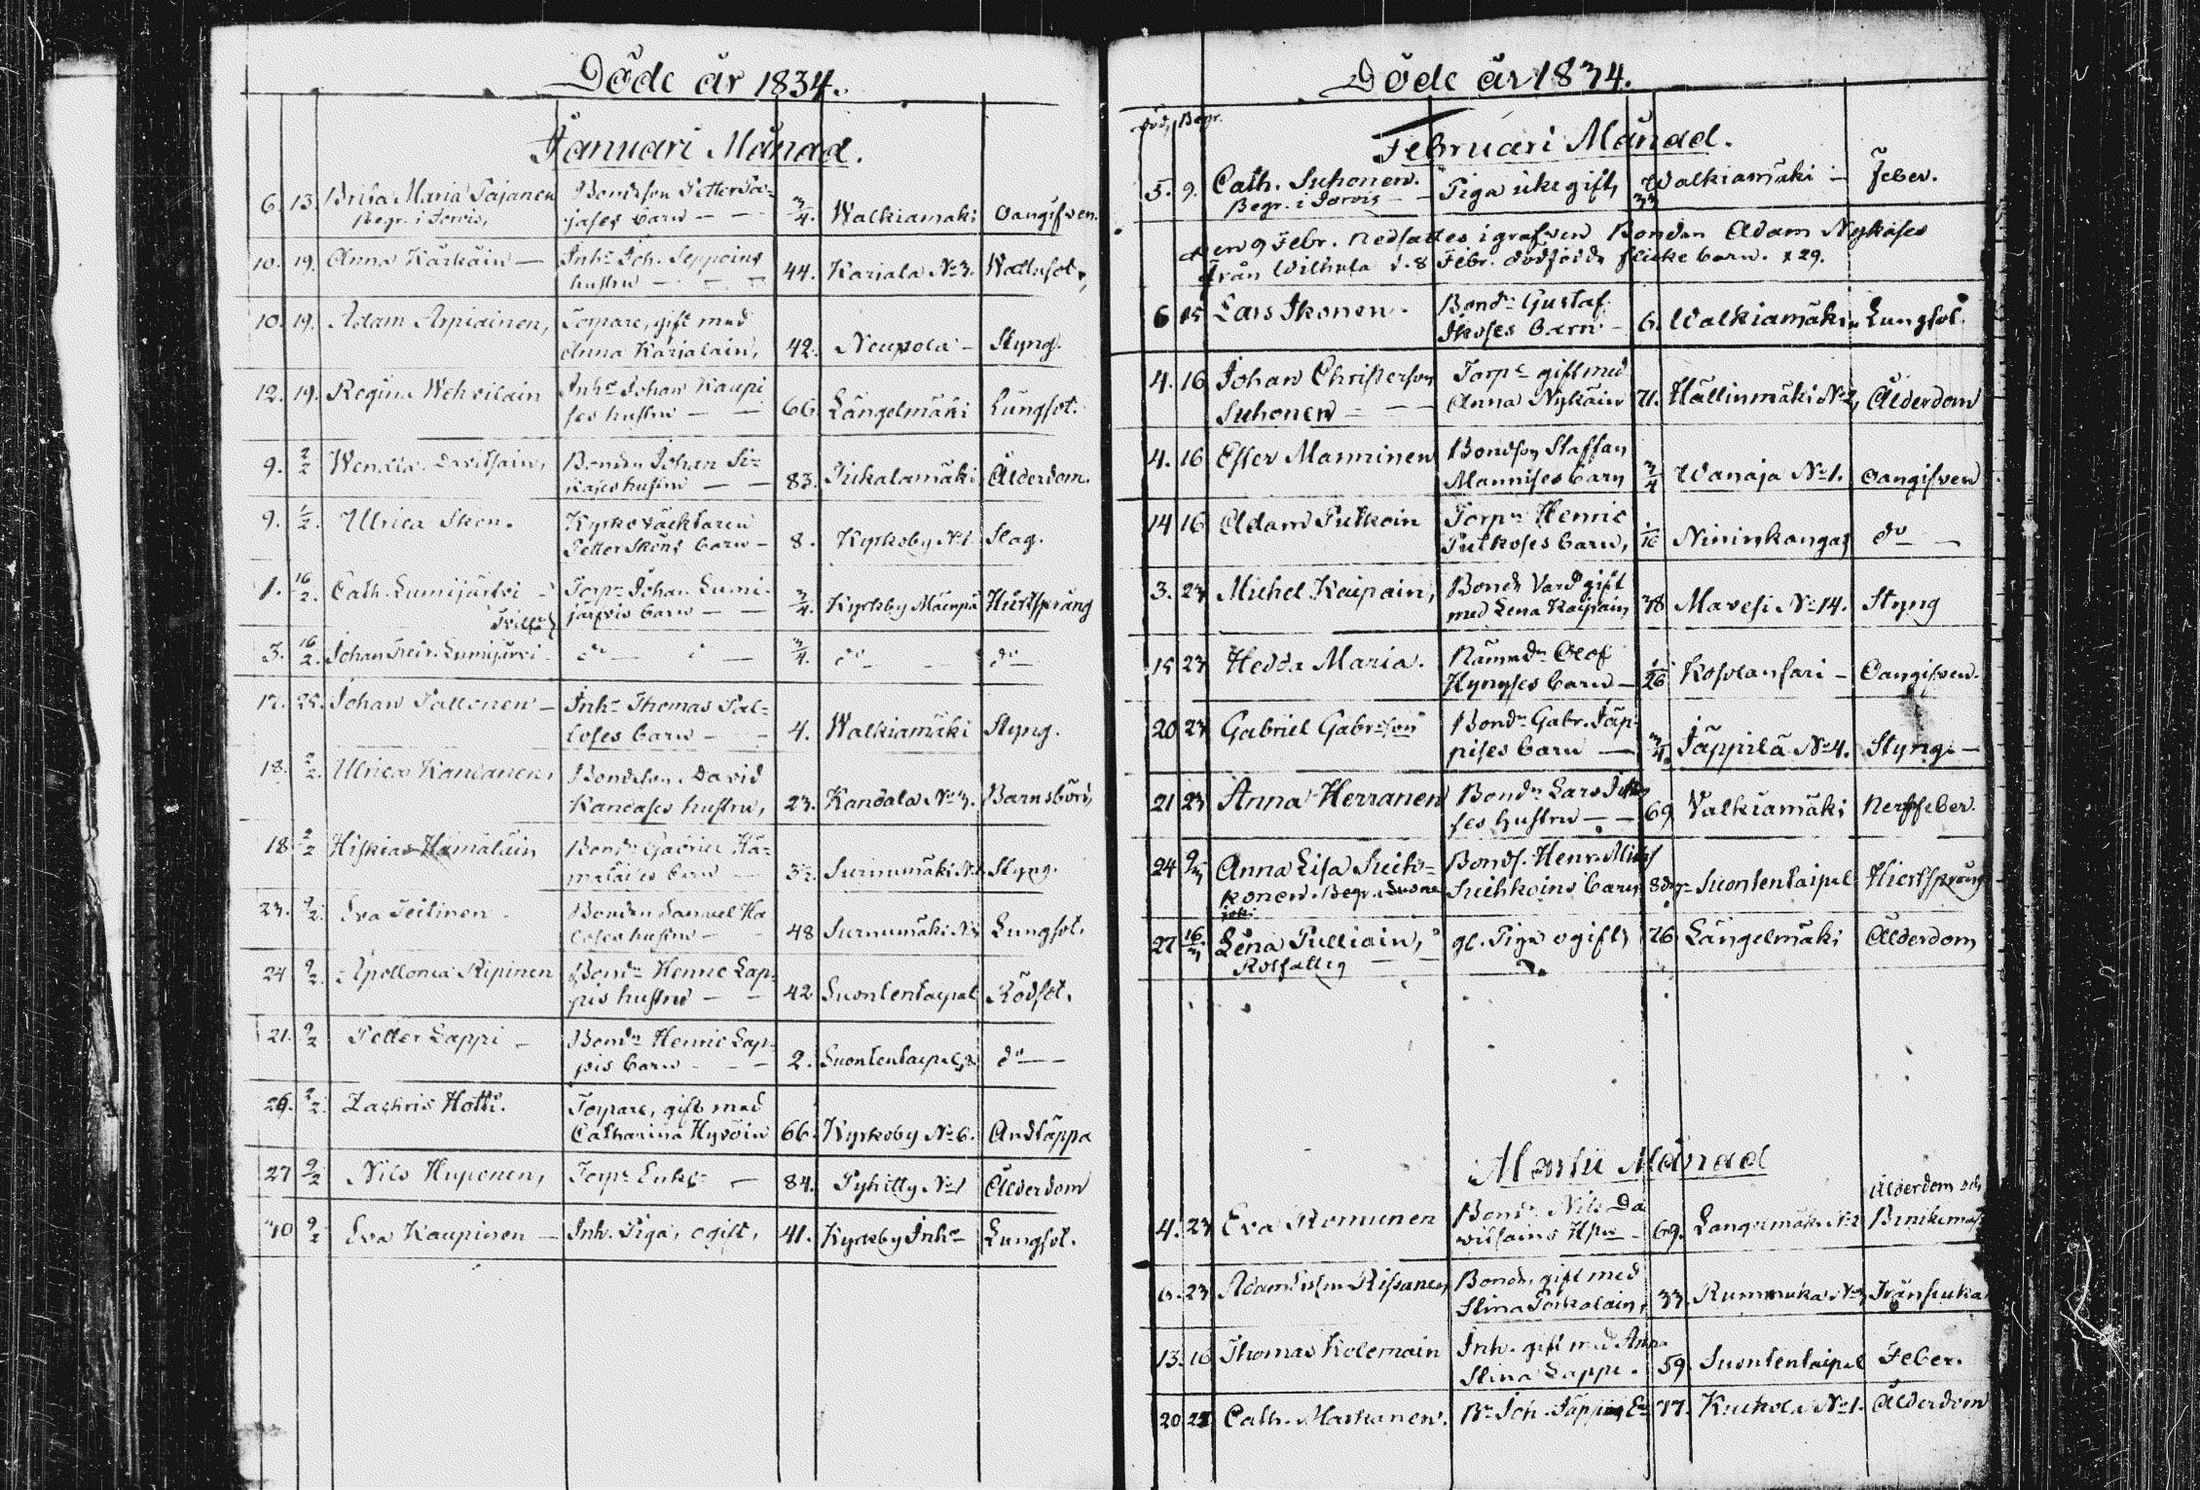 Döde år 1834.
Januari Månad.
6. 13. Brita Maria Pajanen Bondeson Petter Pa=
Begr. i Jorois, jases barn — — 3/4. Walkiamäki oangifven.
10. 19. Anna Kärkäin — Inh. Joh. Seppoins
hustru — — 44. Kariala No 3. Wattusot,
10. 19. Adam Arpiainen, Torpare, gift med
Anna Karjalain, 42. Neupola — Styng.
12. 19. Regina Wehvilain Inh. Johan Kaupi
ses hustru — — 66. Längelmäki Lungsot.
9. 2/2 Bonden Johan
hustru — — 83. Pukalamäki Ålderdom.
9. 2. Ulrica Skön. Kyrkoväcktaren
Petter Sköns barn — 8. Kyrkoby No 1. Slag.
1. 16/2. Cath. Lumijärvi Torp. Johan Lumi-
järvis barn — — 3/4. Kyrkby Hiertsprång
3. 16/2. Johan Lumijärvi — do — — 3/4. do — do —
17. 25. Johan Paldonen — Inh. Thomas Pal=
barn — 4. Walkiamäki Styng.
18. 2/2. Ulrica Kandanen, Bondeson David
Kandases hustru, 23. Kandala No 3. Barnsbörd,
18 2/2 Hiskias Hämäläin Bond. Gabriel Hä=
barn Surnumäki Styng.
23. 2/2. Eva Teitinen — Bonden Samuel Ha
hustru — 48 Surnumäki Lungsot.
24 9/2. Apollonia Ripinen Bond. Henric Lap=
pis hustru — — 42 Suontentaipal Rödsot.
21. 9/2 Petter Lappi — Bond. Henric Lap=
pis barn — — 2. Suontentaipal do —
26. 2/2. Zachris Hotti. Torpare, gift med
Catharina Hyvöin 66. Kyrkoby No 6. Andtäppa
27 9/2 Nils Huponen, Torp. Enkl. — 84. Pyhitty No 1 Ålderdom
30 9/2 Eva Kaupinen — Inh. Piga, ogift, 41. Kyrkby Inh. Lungsot.
Döde år 1834.
död, Begr.
Februari Månad.
5. 9. Cath. Suhonen. Piga icke gift, 33 Walkiamäki — Feber.
Begr. i Jorois —
den 9 Febr. nedsattes i grafven Bonden Adam Nykäses
från Wilhula d. 8 Febr. dödfödde flicke barn. x 29.
6 Lars Ikonen. Bond. Gustaf
Ikoses barn — 6. Walkiamäki Lungsot.
4. 16 Johan Christerson Torp. gift med
Suhonen — — Anna Nykäin 71. Hällinmäki No 2, Ålderdom
4. 16 Ester Manninen Bondson Staffan
Mannises barn 3/4 Wanaja No 1. oangifven
14 16 Adam Putkoin Torp. Henric
Putkoses barn, 1/16 Nininkangas do —
3. 23 Michel Kaipain, Bonde Vard gift
med Lena Kaipain, 78 Mavesi No 14. Styng
15 23 Hedda Maria. Nämnd. Olof
Hynyses barn — 1/26 Kosolansari — Oangifven.
20 23 Gabriel Gabr:son Bond. Gabr. Jäp-
pises barn — 3/4. Jäppilä No 4. Styng —
21 23 Anna Herranen Bond. Lars
ses hustru — — 69 Valkiamäki Nervfeber.
24 9/3 Anna Lisa Suih= Bonds. Henr.
konen. Begr. Suone Suihkoins barn, Suontentaipal Hiertsprång
joki
27 16/3 Lena Pulliain, gl. Piga ogift, 76 Längelmäki Ålderdom
Rotfattig
Martii Månad
Ålderdom och
4. 23 Eva Romunen Bond. Nils Da
vitsains Hru — 69. Längelmäki No 2
6. 23 Rissanen, Bonde, gift med
Stina 33. Rummuka No 3
13. 16 Thomas Kolemain Inh. gift med Anna
Stina Lappi. 59. Suontentaipal Feber.
20 Cath. Markanen. B. Joh. Jäppis 77. No 1. Ålderdom